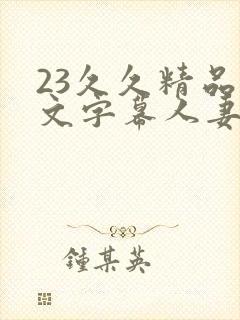 23久久精品
文字幕人妻
鍾某英